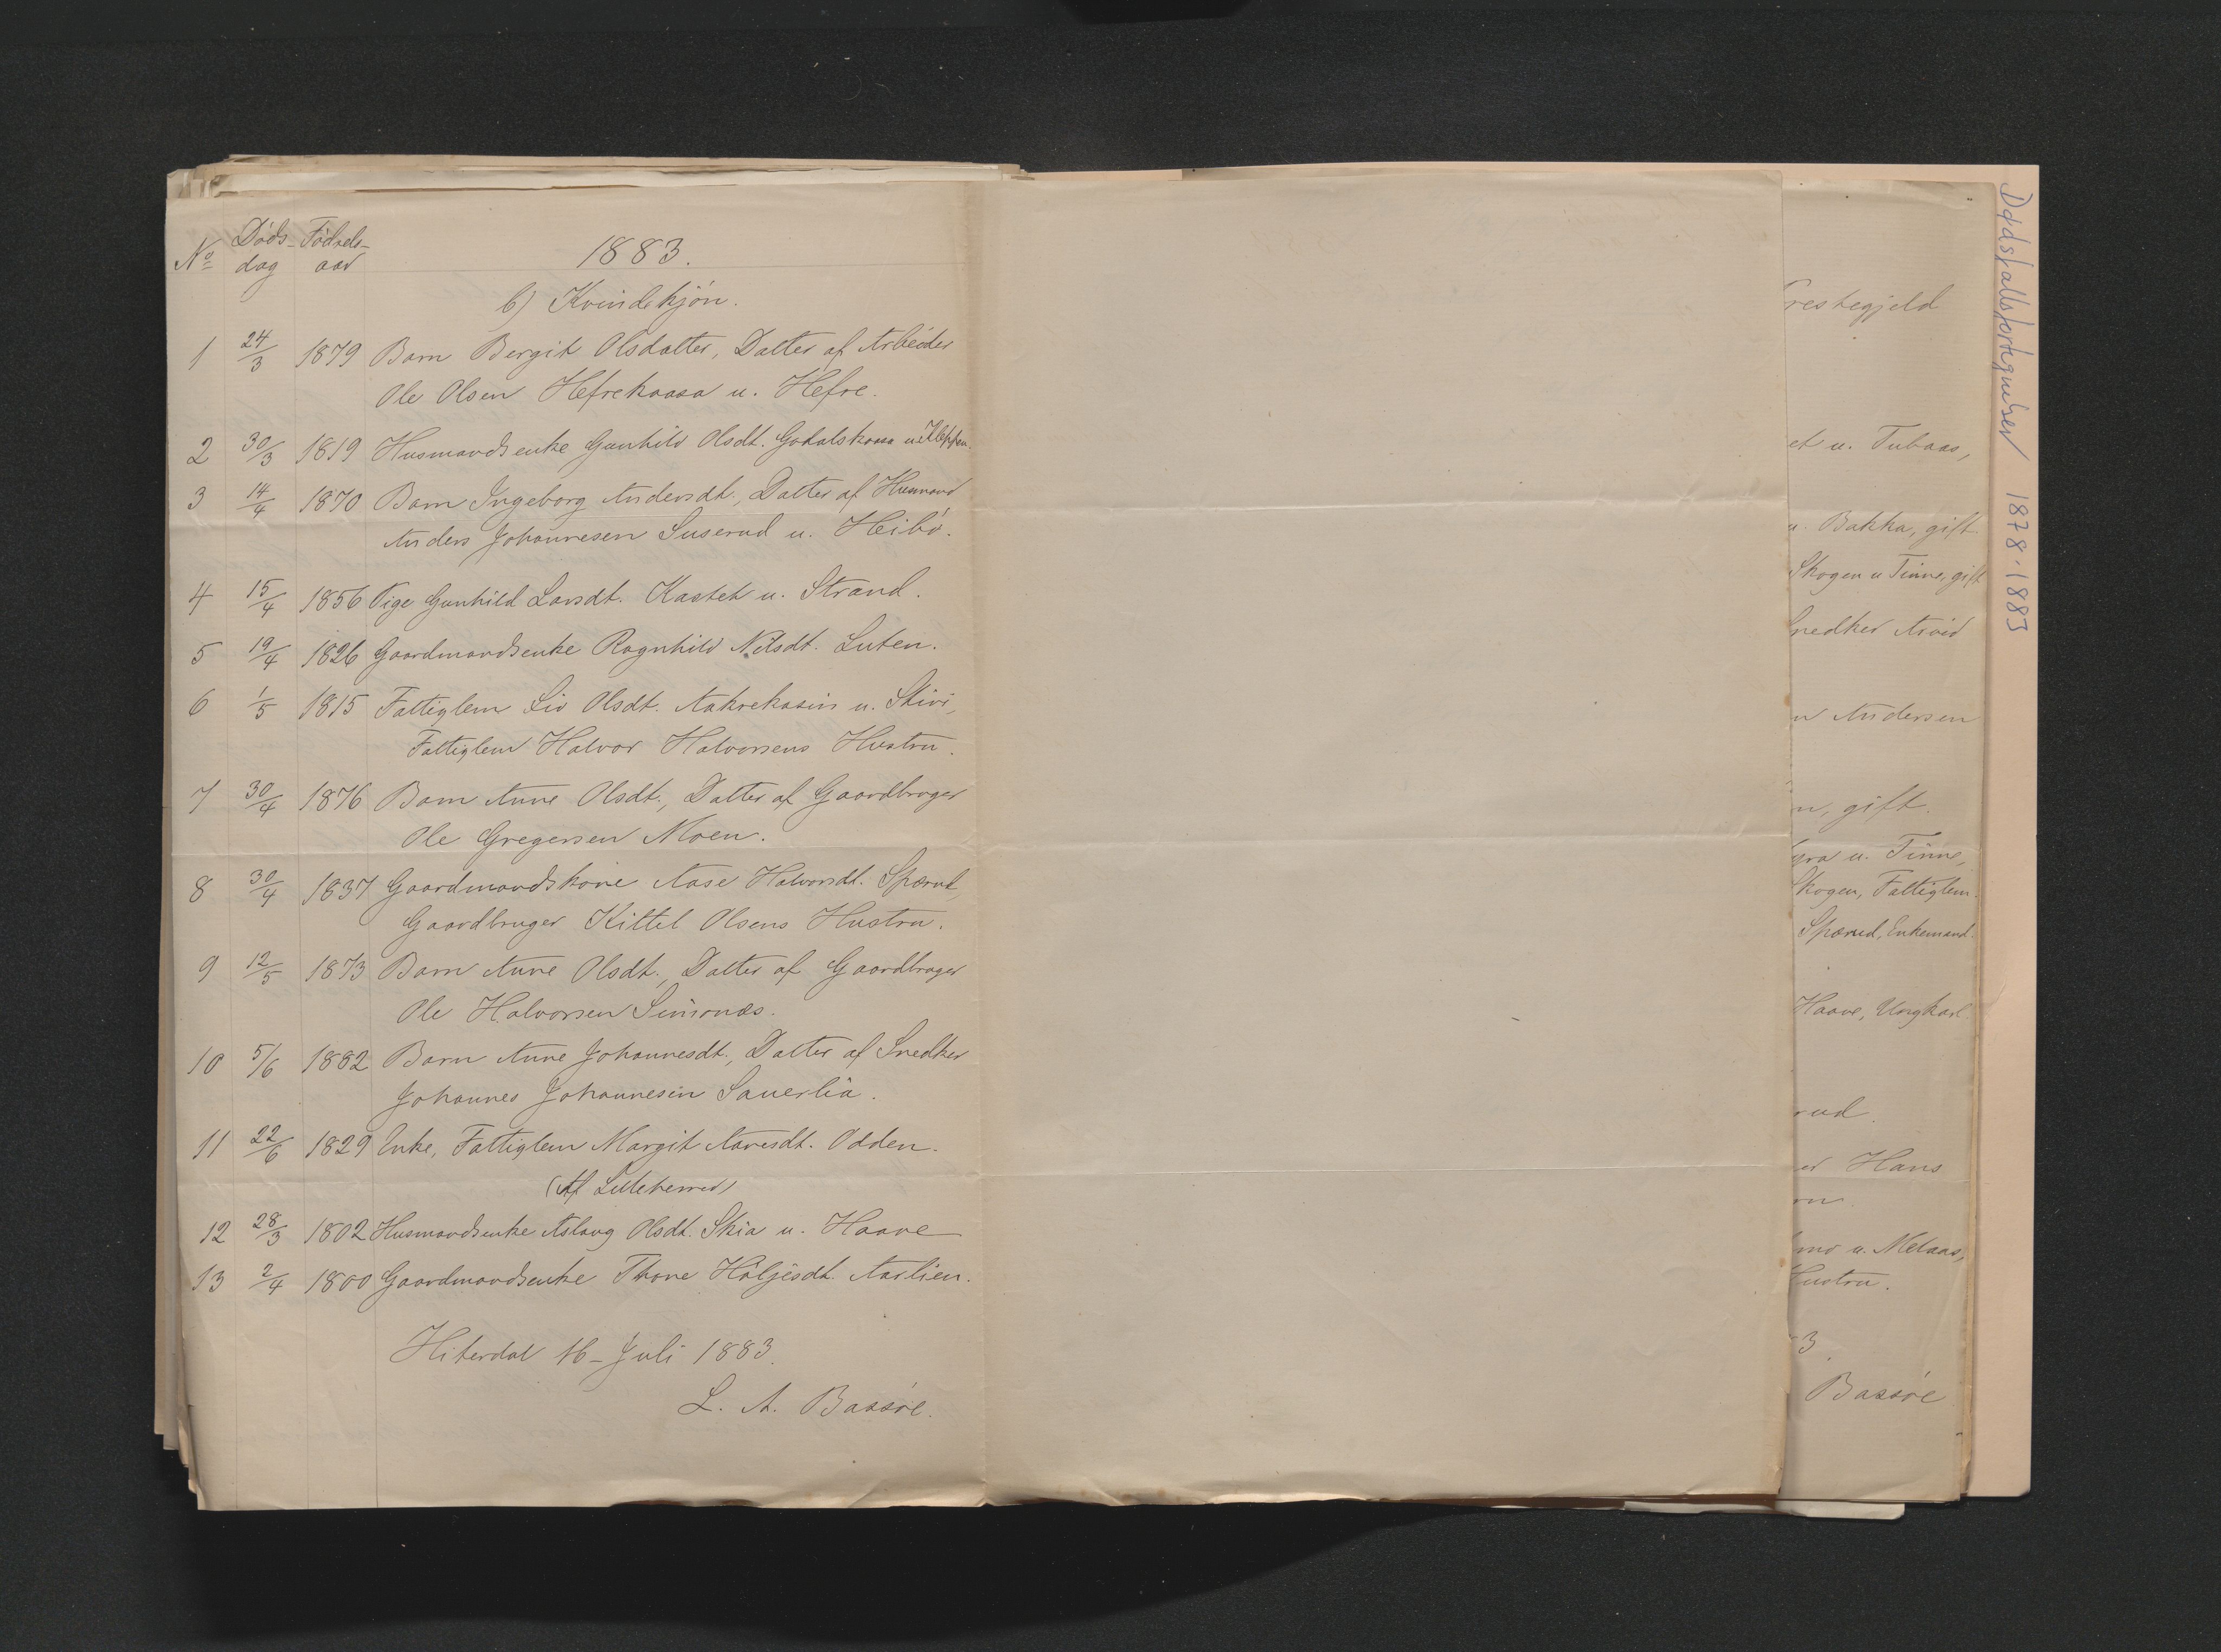 No Döds- Födsels-
dag aar 1883.
b) Kvindekjön.
1 24/3 1879 Barn Bergit Olsdatter, Datter af Arbeider
Ole Olsen Hefrekaasa u. Hefre.
2 30/3 1819 Husmandsenke Gunhild Olsdt. Godalskaasa u. Kleppen.
3 14/4 1870 Barn Ingeborg Andersdt., Datter af Husmand
Anders Johannesen Suserud u. Heibö.
4 15/4 1856 Pige Gunhild Larsdt. Kastet u. Strand.
5 19/4 1826 Gaardmandsenke Ragnhild Nilsdt. Luten.
6 1/5 1815 Fattiglem Liv Olsdt. Aakrekasin u. Skivi,
Fattiglem Halvor Halvorsens Hustru.
7 30/4 1876 Barn Anne Olsdt., Datter af Gaardbruger
Ole Gregersen Moen.
8 30/4 1837 Gaardmandskone Aase Halvorsdt. Spærud,
Gaardbruger Kittel Olsens Hustru.
9 12/5 1873 Barn Anne Olsdt., Datter af Gaardbruger
Ole Halvorsen
10 5/6 1882 Barn Anne Johannesdt., Datter af Snedker
Johannes Johannesen Sauerlia.
11 22/6 1829 Enke, Fattiglem Margit Aavesdt. Odden.
(Af Lilleherred)
12 28/3 1802 Husmandsenke Aslaug Olsdt. Skia u. Haave
13 2/4 1800 Gaardmandsenke Thone Höljesdt. Aarlien.
Hiterdal 16 - Juli 1883.
L. A. Bassöe.
restegjeld
et u. Tubaas,
u. Bakka, gift
Skogen u Tinne, gift
nedker Arvid
n Andersen
n, gift.
gra u. Tinne,
Skogen, Fattiglem.
Spærud, Enkemand.
Haave, Ungkarl.
rud.
er Hans
en.
mo u. Melaas,
Hustru.
3
Bassöe
Dødsfallsfortegnelser 1878-1883